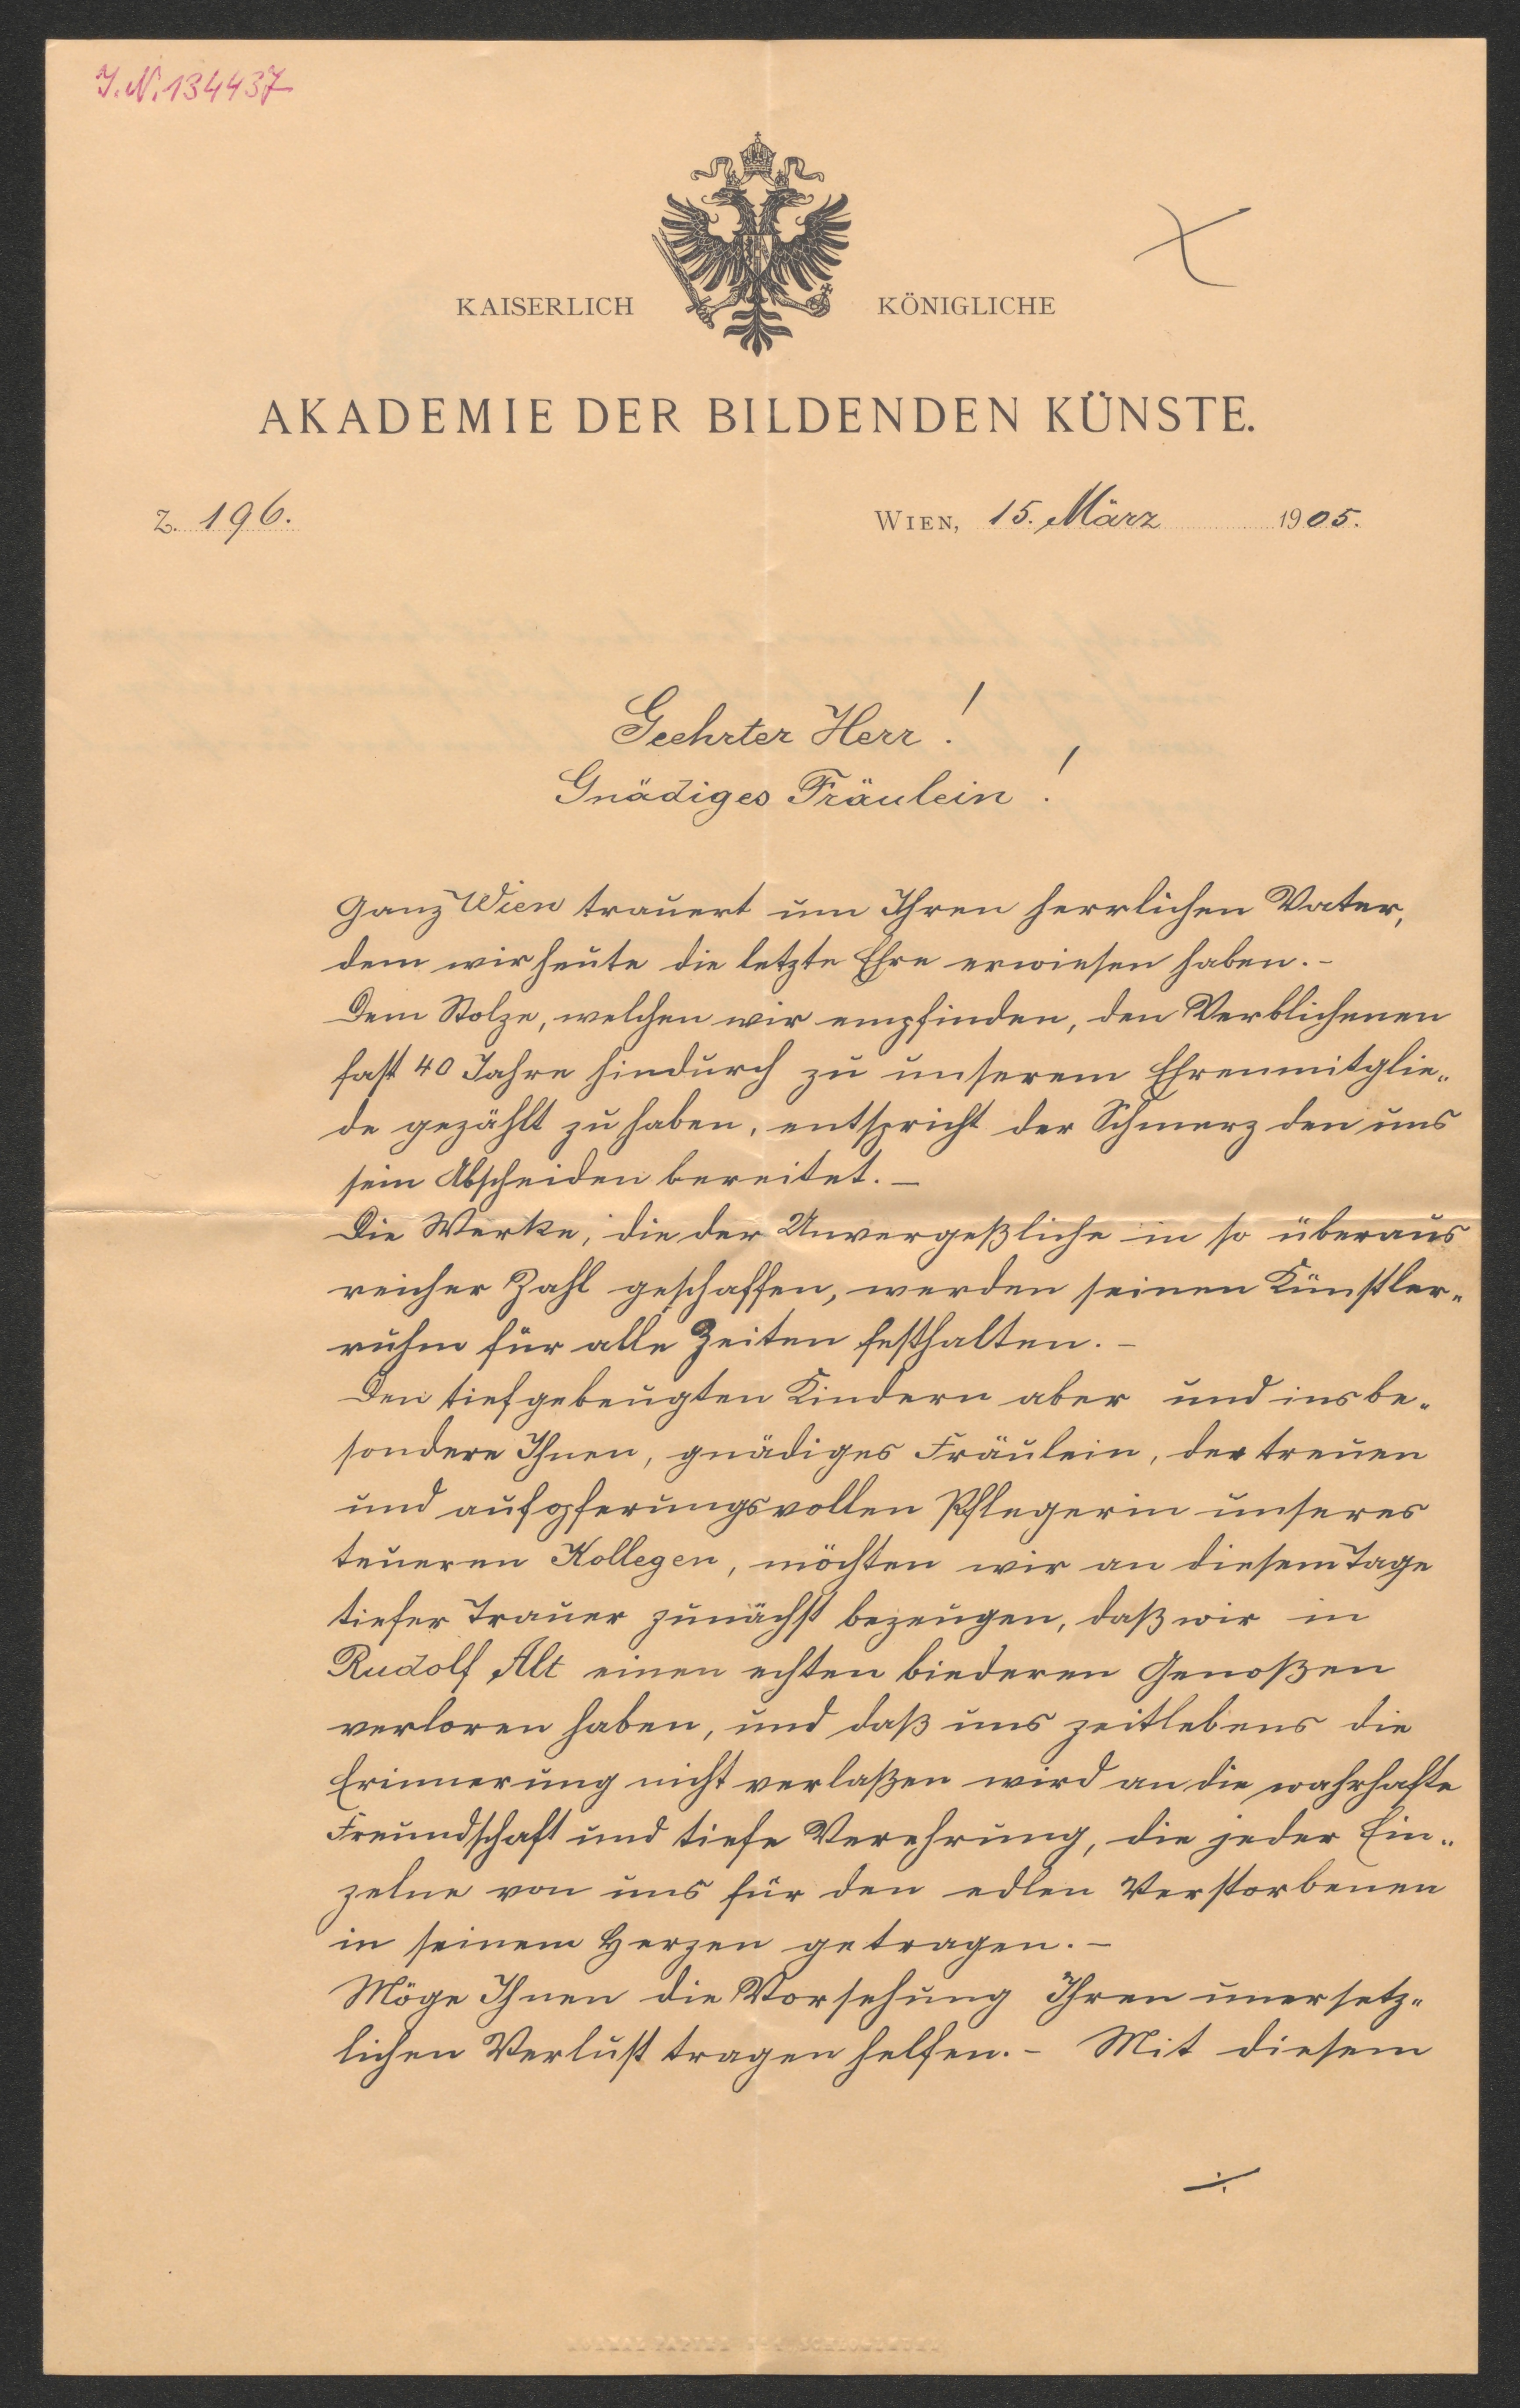 I.N.134437
KAISERLICH KÖNIGLICHE
AKADEMIE DER BILDENDEN KÜNSTE.
Z. 196. WIEN, 15. März 1905.
Geehrter Herr!
Gnädiges Fräulein!
Ganz Wien trauert um Ihren herrlichen Vater,
dem wir heute die letzte Ehre erwiesen haben. –
Dem Stolze, welchen wir empfinden, den Verblichenen
fast 40 Jahre hindurch zu unserem Ehrenmitglie-
de gezählt zu haben, entspricht der Schmerz den uns
sein Abscheiden bereitet. –
Die Werke, die der Unvergeßliche in so überaus
reicher Zahl geschaffen, werden seinen Künstler-
ruhm für alle Zeiten festhalten. –
Den tiefgebeugten Kindern aber und insbe-
sondere Ihnen, gnädiges Fräulein, der treuen
und aufopferungsvollen Pflegerin unseres
teueren Kollegen, möchten wir an diesem Tage
tiefer Trauer zunächst bezeugen, daß wir in
Rudolf Alt einen echten biederen Genoßen
verloren haben, und daß uns zeitlebens die
Erinnerung nicht verlaßen wird an die wahrhafte
Freundschaft und tiefe Verehrung, die jeder Ein-
zelne von uns für den edlen Verstorbenen
in seinem Herzen getragen. –
Möge Ihnen die Vorsehung Ihren unersetz-
lichen Verlust tragen helfen. – Mit diesem
./.